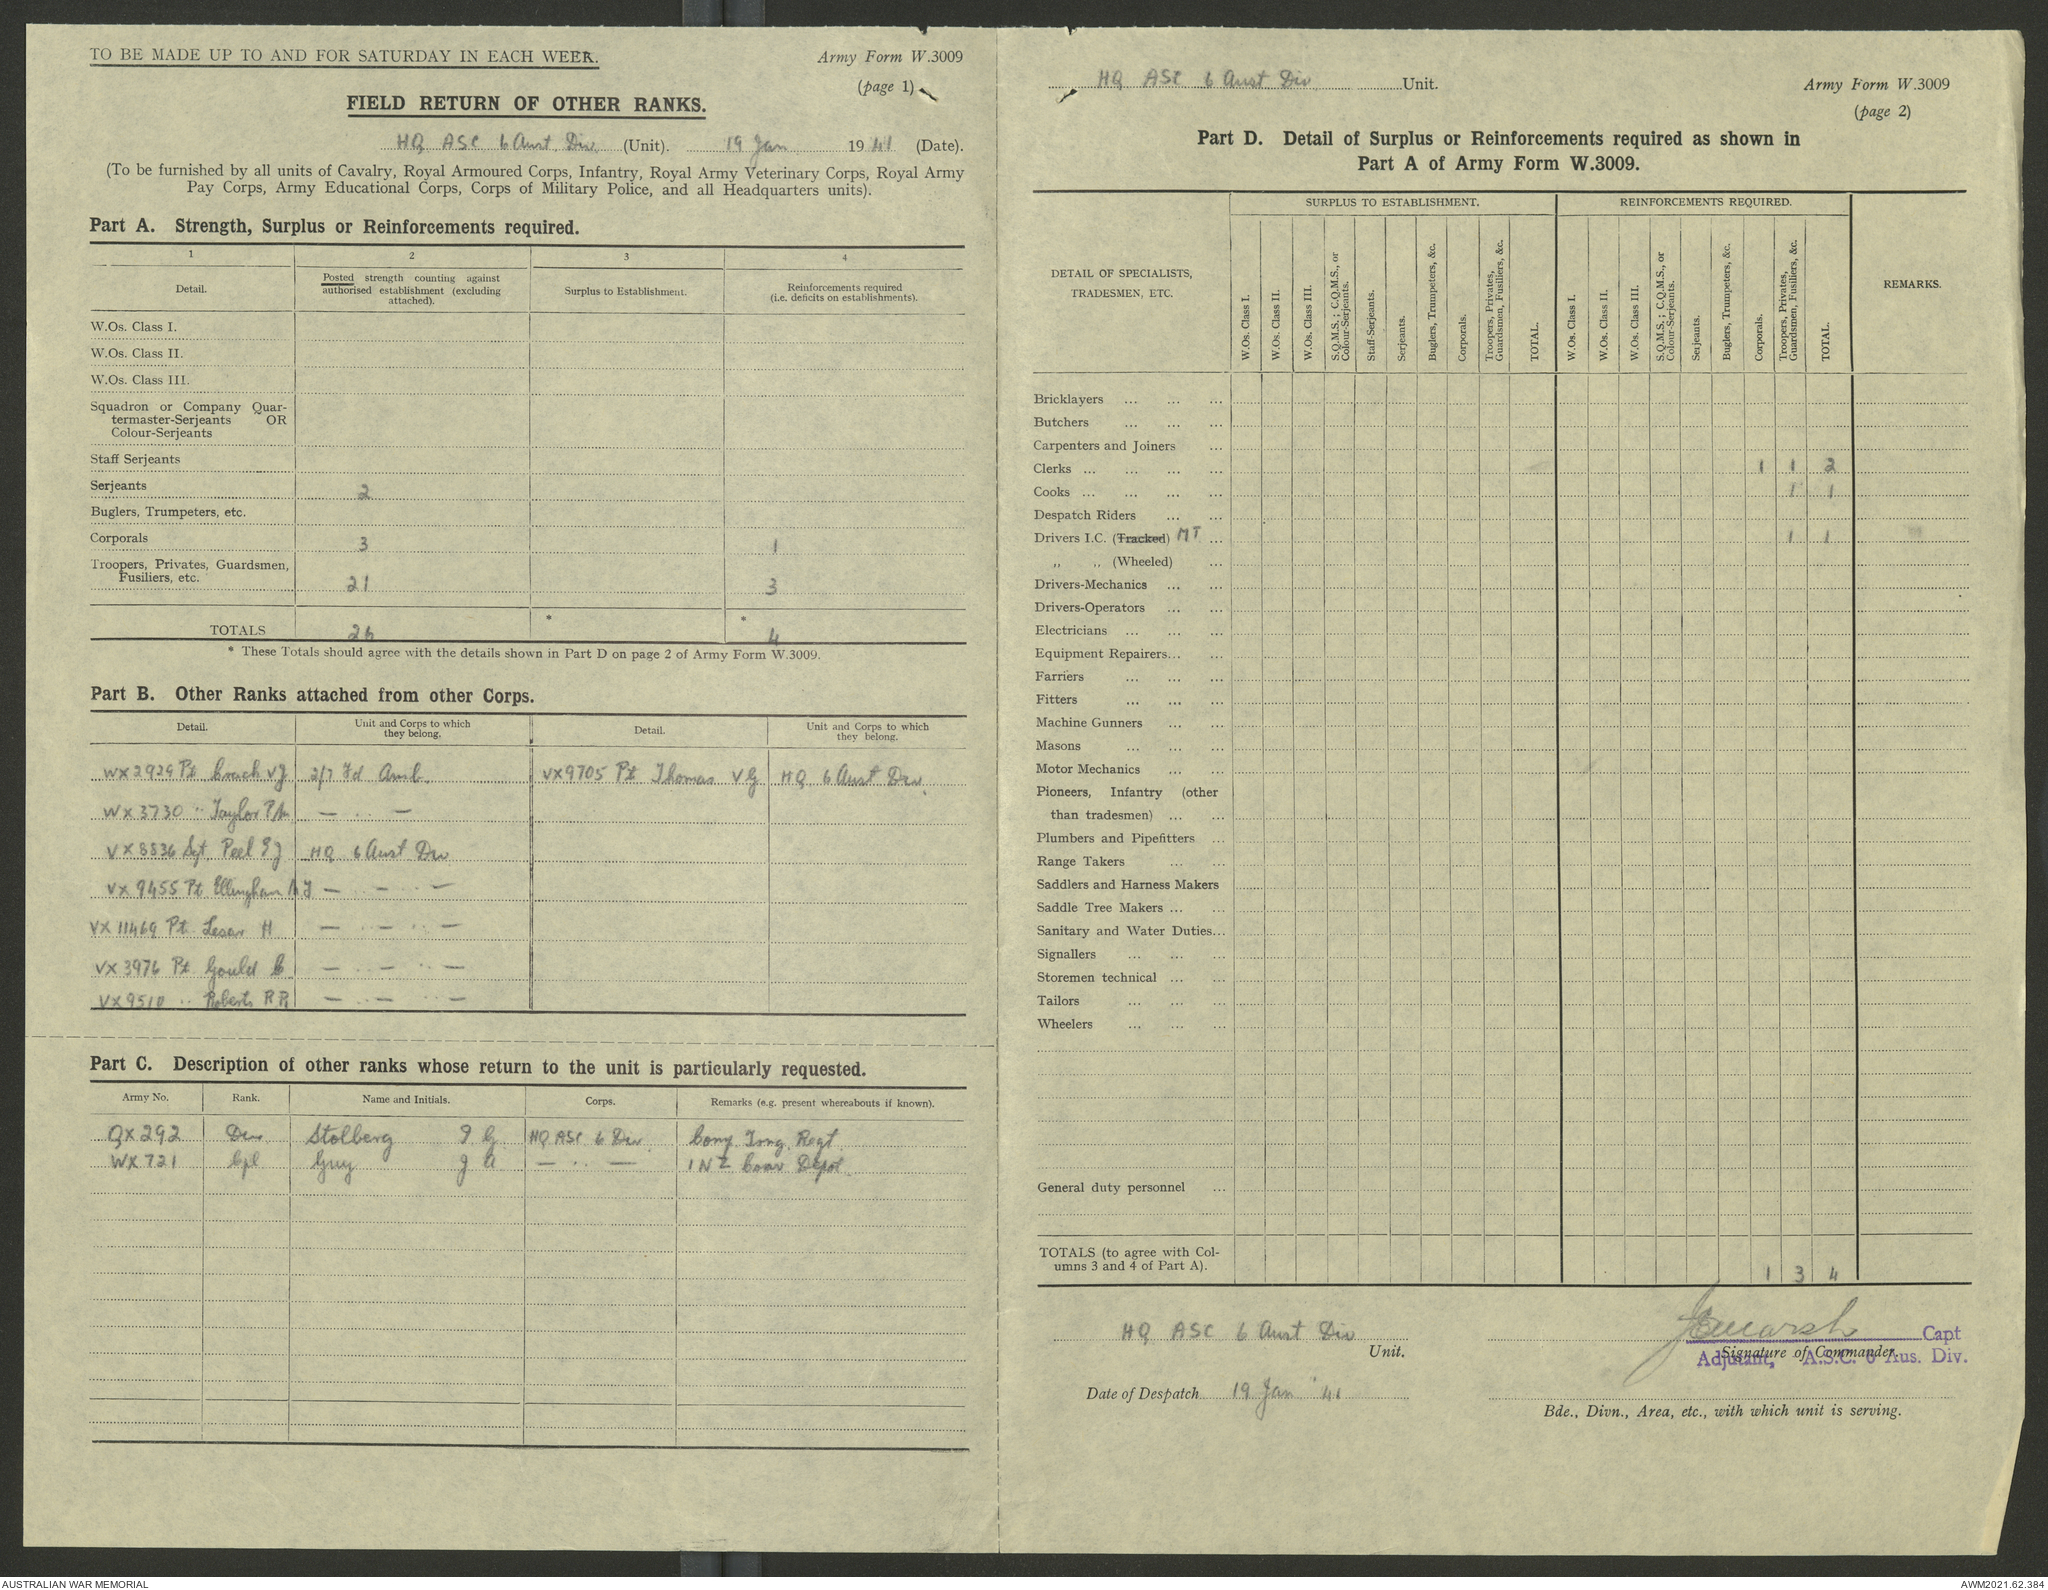 TO BE MADE UP TO AND FOR SATURDAY IN EACH WEEK.
Army Form W.3009
(page 1)
FIELD RETURN OF OTHER RANKS.
HQ ASC 6 Aust Div (Unit). 19 Jan 1941 (Date).
(To be furnished by all units of Cavalry, Royal Armoured Corps, Infantry, Royal Army Veterinary Corps, Royal Army
Pay Corps, Army Educational Corps, Corps of Military Police, and all Headquarters units).
Part A. Strength, Surplus or Reinforcements required.
1 2 3 4
Detail. Posted strength counting against authorised establishment (excluding attached). Surplus to Establishment. Reinforcements required (i.e. deficits on establishments).
W.Os. Class I.
W.Os. Class II.
W.Os. Class III.
Squadron or Company Quar-
termaster-Serjeants OR
Colour-Serjeants
Staff Serjeants
Serjeants 2
Buglers, Trumpeters, etc.
Corporals 3 1
Troopers, Privates, Guardsmen,
Fusiliers, etc. 21 3
TOTALS 26 * * 4
* These Totals should agree with the details shown in Part D on page 2 of Army Form W.3009.
Part B. Other Ranks attached from other Corps.
Detail. Unit and Corps to which they belong. Detail. Unit and Corps to which they belong.
WX2929 Pt VJ 2/7 Fd Amb. VX9705 Pt Thomas V G HQ 6 Aust Div.
WX3730 " Taylor — " —
VX8836 Sgt Peel E J HQ 6 Aust Div
VX9455 Pt Ellingham — " — " —
VX11469 Pt Lesar H — " — " —
VX3976 Pt Gould C — " — " —
VX9510 " Roberts R R — " — " —
Part C. Description of other ranks whose return to the unit is particularly requested.
Army No. Rank. Name and Initials. Corps. Remarks (e.g. present whereabouts if known).
QX292 Dvr Stolberg I G HQ ASC 6 Div Conv Trng Regt
WX721 Cpl Guy J A — " — 1 NZ Conv Depot
HQ ASC 6 Aust Div Unit.
Army Form W.3009
(page 2)
Part D. Detail of Surplus or Reinforcements required as shown in
Part A of Army Form W.3009.
SURPLUS TO ESTABLISHMENT. REINFORCEMENTS REQUIRED.
DETAIL OF SPECIALISTS,
TRADESMEN, ETC.
W.Os. Class I. W.Os. Class II. W.Os. Class III. S.Q.M.S.; C.Q.M.S., or Colour-Serjeants. Staff-Serjeants. Serjeants. Buglers, Trumpeters, &c. Corporals. Troopers, Privates, Guardsmen, Fusiliers, &c. TOTAL.
W.Os. Class I. W.Os. Class II. W.Os. Class III. S.Q.M.S.; C.Q.M.S., or Colour-Serjeants. Serjeants. Buglers, Trumpeters, &c. Corporals. Troopers, Privates, Guardsmen, Fusiliers, &c. TOTAL.
REMARKS.
Bricklayers ... ... ...
Butchers ... ... ...
Carpenters and Joiners ...
Clerks ... ... ... ... 1 1 2
Cooks ... ... ... ... 1 1
Despatch Riders ... ...
Drivers I.C. (Tracked) MT ... 1 1
" " (Wheeled) ...
Drivers-Mechanics ... ...
Drivers-Operators ... ...
Electricians ... ... ...
Equipment Repairers... ...
Farriers ... ... ...
Fitters ... ... ...
Machine Gunners ... ...
Masons ... ... ...
Motor Mechanics ... ...
Pioneers, Infantry (other
than tradesmen) ... ...
Plumbers and Pipefitters ...
Range Takers ... ...
Saddlers and Harness Makers
Saddle Tree Makers ... ...
Sanitary and Water Duties...
Signallers ... ... ...
Storemen technical ... ...
Tailors ... ... ...
Wheelers ... ... ...
General duty personnel ...
TOTALS (to agree with Col-
umns 3 and 4 of Part A). 1 3 4
HQ ASC 6 Aust Div
Unit.
Marsh Capt
Signature of Commander.
Adjutant, A.S.C. 6 Aus. Div.
Date of Despatch 19 Jan '41
Bde., Divn., Area, etc., with which unit is serving.
AUSTRALIAN WAR MEMORIAL
AWM2021.62.384